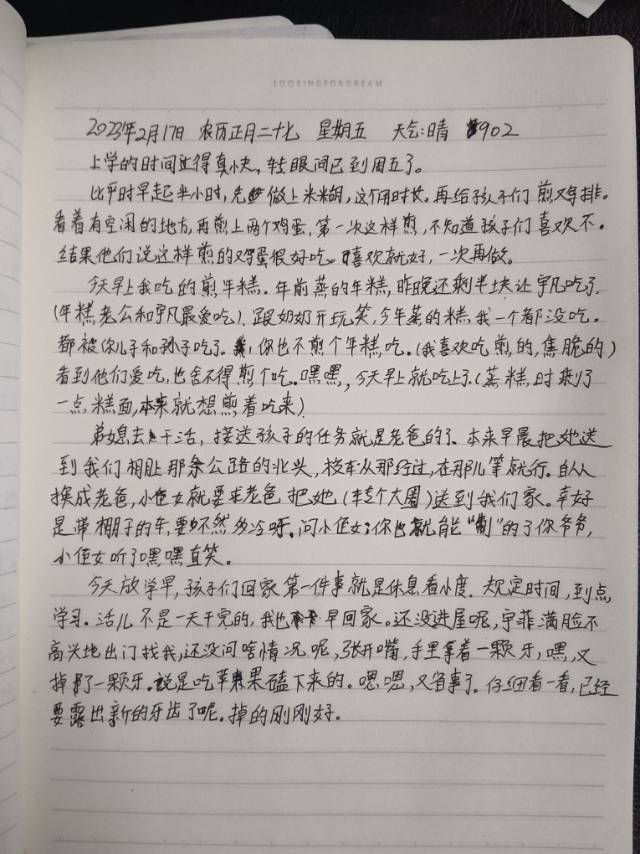 LOOKINGFORDREAM
2023年2月17日 农历正月二十七 星期五 天气:晴 902
上学的时间过得真快,转眼间已到周五了。
比平时早起半小时,先做上米糊,这个用时长。再给孩子们煎鸡排。
看着有空闲的地方,再煎上两个鸡蛋,第一次这样煎,不知道孩子们喜欢不。
结果他们说这样煎的鸡蛋很好吃。喜欢就好,一次再做。
今天早上我吃的煎年糕.年前蒸的年糕,昨晚还剩半块让宇凡吃了.
(年糕老公和宇凡最爱吃).跟奶奶开玩笑,今年蒸的糕我一个都没吃。
都被你儿子和孙子吃了.你也不煎个年糕吃.(我喜欢吃煎的,焦脆的)
看到他们爱吃,也舍不得煎个吃。嘿嘿,今天早上就吃上了.(蒸糕,时剩了
一点糕面,本来就想煎着吃来)
弟媳去上干活,接送孩子的任务就是老爸的了.本来早晨把她送
到我们相邻那条公路的北头,校车从那经过,在那儿等就行。自从
换成老爸,小侄女就要求老爸把她(转个大圈)送到我们家。幸好
是带棚子的车,要不然多冷呀。问小侄女;你也就能"制"的了你爷爷,
小侄女听了嘿嘿直笑。
今天放学早,孩子们回家第一件事就是休息看小度.规定时间,到点
学习。活儿不是一天干完的,我也早回家。还没进屋呢,宇菲满脸不
高兴地出门找我,还没问啥情况呢,张开嘴,手里拿着一颗牙,嘿,又
掉了一颗牙。说是吃苹果磕下来的。嗯嗯,又省事了。仔细看一看,已经
要露出新的牙齿了呢。掉的刚刚好。